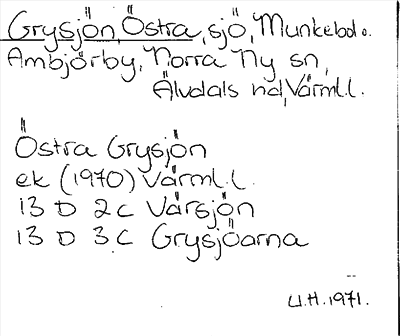 Grysjön, Östra, sjö, Munkebol o.
Ambjörby, Norra Ny sn,
Älvdals hd, Värml.l.
Östra Grysjön
ek (1970) Värml.l.
13 D 2c Vårsjön
13 D 3c Grysjöarna
U.H. 1971.